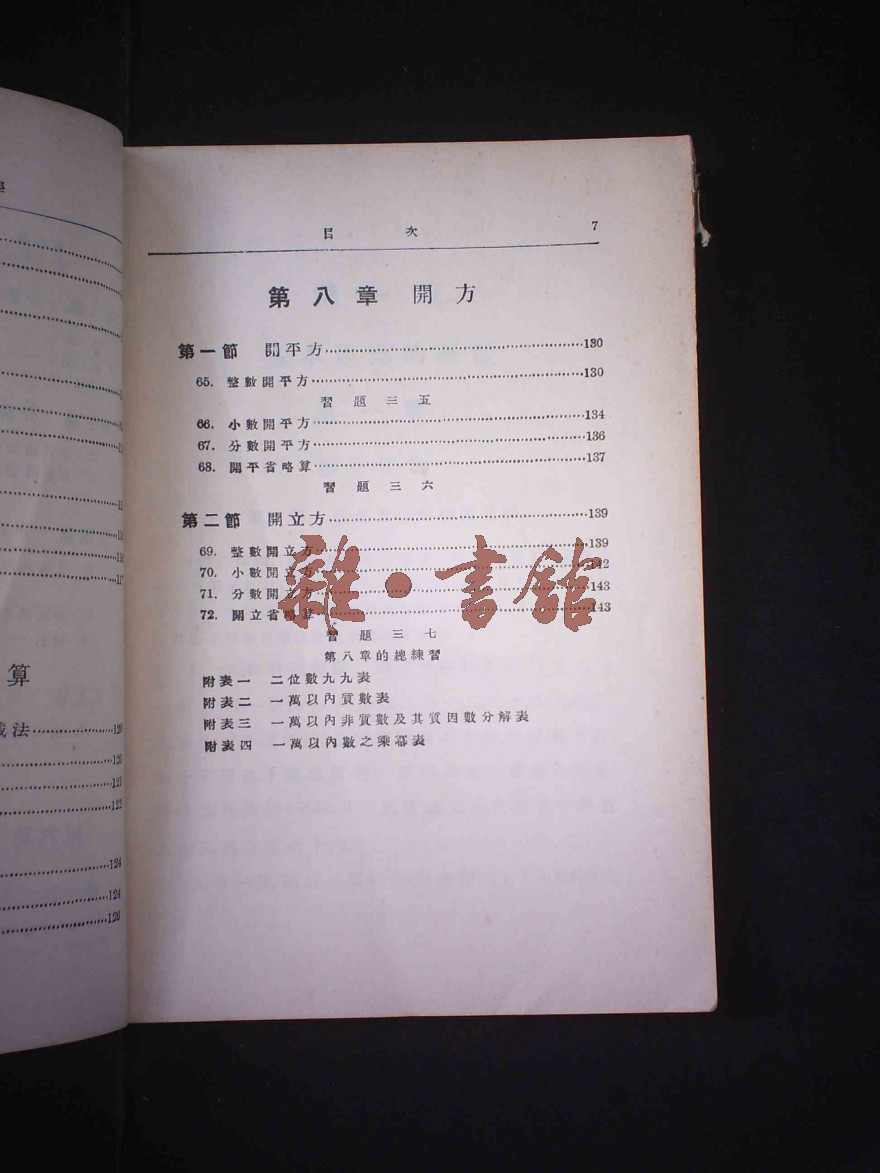 算
法……120
120
121
122
124
124
126
目 次 7
第八章 開方
第一節 開平方……130
65. 整數開平方……130
習題三五
66. 小數開平方……134
67. 分數開平方……136
68. 開平省略算……137
習題三六
第二節 開立方……139
69. 整數開立方……139
70. 小數開立方……142
71. 分數開立方……143
72. 開立省略算……143
習題三七
第八章的總練習
附表一 二位數九九表
附表二 一萬以內質數表
附表三 一萬以內非質數及其質因數分解表
附表四 一萬以內數之乘冪表
雜·書館